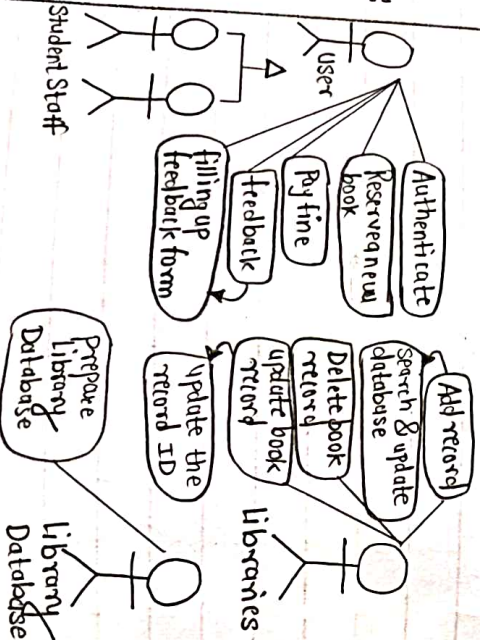 User
Student Staff
Authenticate
Reserve a new
book
Pay fine
feedback
filling up
feedback form
Add record
search & update
database
Delete book
record
update book
record
update the
record ID
Libraries
prepare
Library
Database
Library
Database